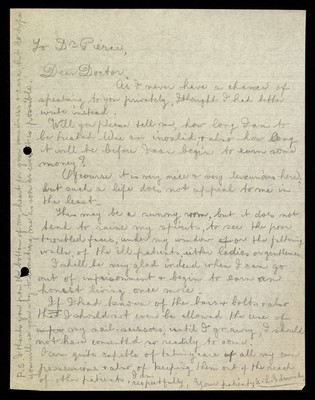 To Dr Pierce,
Dear Doctor,
As I never have a chance of
speaking to you privately, I thought I had better
write instead.
Will you please tell me, how long I am to
be treated like an invalid & also how long
it will be before I can begin to earn some
money?
Of course it is very nice & very luxurious here,
but such a life does not appeal to me in
the least.
This may be a sunny room, but it does not
tend to raise my spirits, to see the poor
troubled faces, under my window or on the
walks, of the other patients, either ladies or gentlemen.
I shall be very glad indeed when I can go
out of imprisonment & begin to earn an
honest living, once more.
If I had known of the bars & bolts & also
that I should not even be allowed the use of
my nail-scissors, until I go away, I should
not have consented so readily to come.
I am quite capable of taking care of all my own
possessions & also of keeping them out of the reach
of other patients. I am respectfully, Your patient,
P.S. I thank you from the bottom of my heart for your